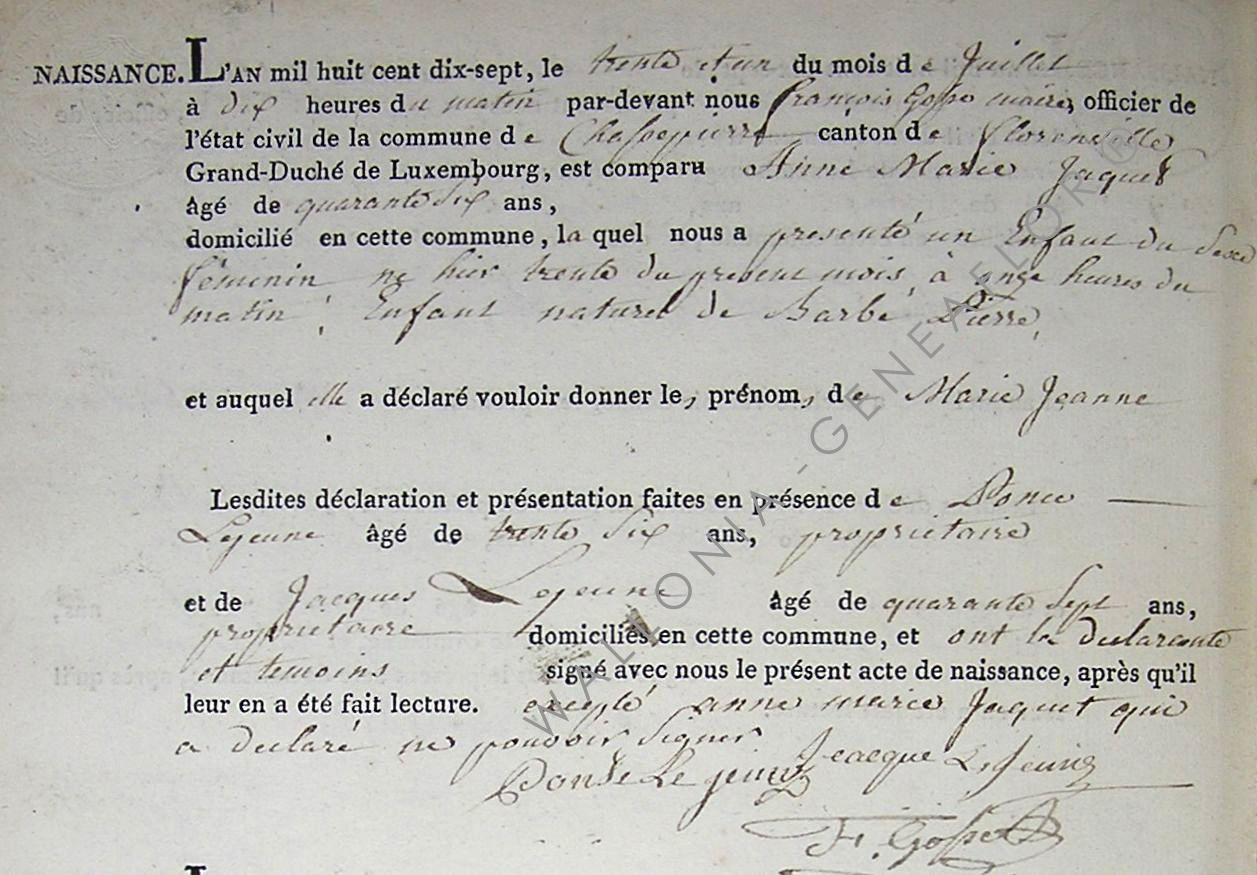 NAISSANCE. L'AN mil huit cent dix-sept, le trente et un du mois de Juillet
à dix heures du matin par-devant nous françois Gosse maire, officier de
l'état civil de la commune de Chassepierre canton de florenville
Grand-Duché de Luxembourg, est comparu Anne Marie Jaquet
âgé de quarante Six ans,
domicilié en cette commune, la quel nous a presenté un Enfant du Sexe
féminin né hier trente du present mois, à onze heures du
matin, Enfant naturel de Barbe Pierre,
et auquel elle a déclaré vouloir donner le, prénom, de Marie Jeanne
Lesdites déclaration et présentation faites en présence de Ponce
Lejeune âgé de trente Six ans, proprietaire
et de Jacques Lejeune âgé de quarante Sept ans,
proprietaire domiciliés en cette commune, et ont la declarante
et temoins signé avec nous le présent acte de naissance, après qu'il
leur en a été fait lecture. excepté anne marie Jaquet qui
a declaré ne pouvoir Signer
Jeacque LeJeune
Ponse Le jeune
F. Gosse
WALLONIA-GENEAFLOR ©